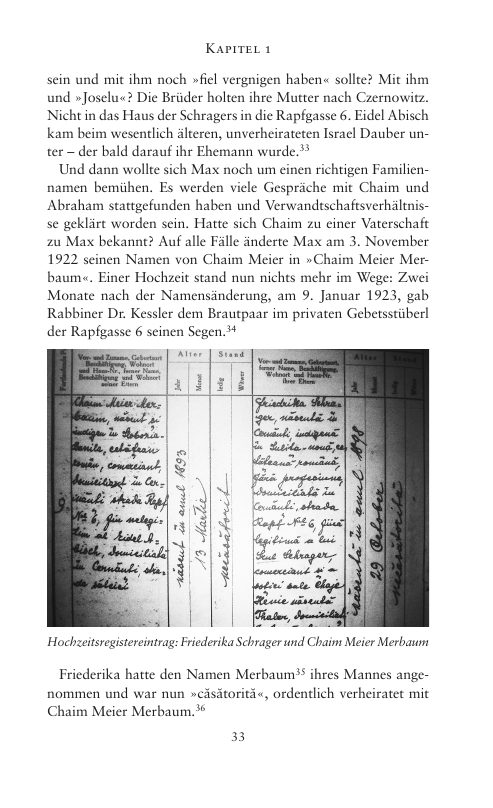 Kapitel 1
sein und mit ihm noch »fiel vergnigen haben« sollte? Mit ihm
und »Joselu«? Die Brüder holten ihre Mutter nach Czernowitz.
Nicht in das Haus der Schragers in die Rapfgasse 6. Eidel Abisch
kam beim wesentlich älteren, unverheirateten Israel Dauber un-
ter – der bald darauf ihr Ehemann wurde.33
Und dann wollte sich Max noch um einen richtigen Familien-
namen bemühen. Es werden viele Gespräche mit Chaim und
Abraham stattgefunden haben und Verwandtschaftsverhältnis-
se geklärt worden sein. Hatte sich Chaim zu einer Vaterschaft
zu Max bekannt? Auf alle Fälle änderte Max am 3. November
1922 seinen Namen von Chaim Meier in »Chaim Meier Mer-
baum«. Einer Hochzeit stand nun nichts mehr im Wege: Zwei
Monate nach der Namensänderung, am 9. Januar 1923, gab
Rabbiner Dr. Kessler dem Brautpaar im privaten Gebetsstüberl
der Rapfgasse 6 seinen Segen.34
Vor- und Zuname, Geburtsort
Beschäftigung, Wohnort
und Haus-Nr., ferner Name,
Beschäftigung und Wohnort
seiner Eltern
Alter
Jahr
Monat
Stand
ledig
Witwer
Vor- und Zuname, Geburtsort
ferner Name, Beschäftigung,
Wohnort und Haus-Nr.
ihrer Eltern
Alter
Jahr
Monat
Stand
ledig
Chaim Meier Mer-
baum, născut și
indigen în Slobozia-
Banila, cetățean
român, comerciant,
domiciliat în Cer-
năuți strada Rapf
No 6, fiu nelegi-
tim al Eidel A-
bisch, domiciliată
în Cernăuți, stra-
da
născut în anul 1893
13 Martie
necăsătorit
Friedrika Schra-
ger, născută în
Cernăuți, indigenă
în Sulita-nouă, ce-
tățeană română,
fără profesiune,
domiciliată în
Cernăuți, strada
Rapf No 6, fiică
legitimă a lui
Srul Schrager,
comerciant și a
soției sale Chaje
Henie născută
Thaler, domiciliați
născută în anul 1898
29 Octobor
necăsătorită
Hochzeitsregistereintrag: Friederika Schrager und Chaim Meier Merbaum
Friederika hatte den Namen Merbaum35 ihres Mannes ange-
nommen und war nun »căsătorită«, ordentlich verheiratet mit
Chaim Meier Merbaum.36
33